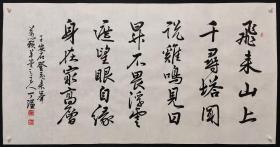 飛来山上
千尋塔聞
説雞鳴見日
昇不畏浮雲
遮望眼自缘
身在最高層
王安石登飛来峰